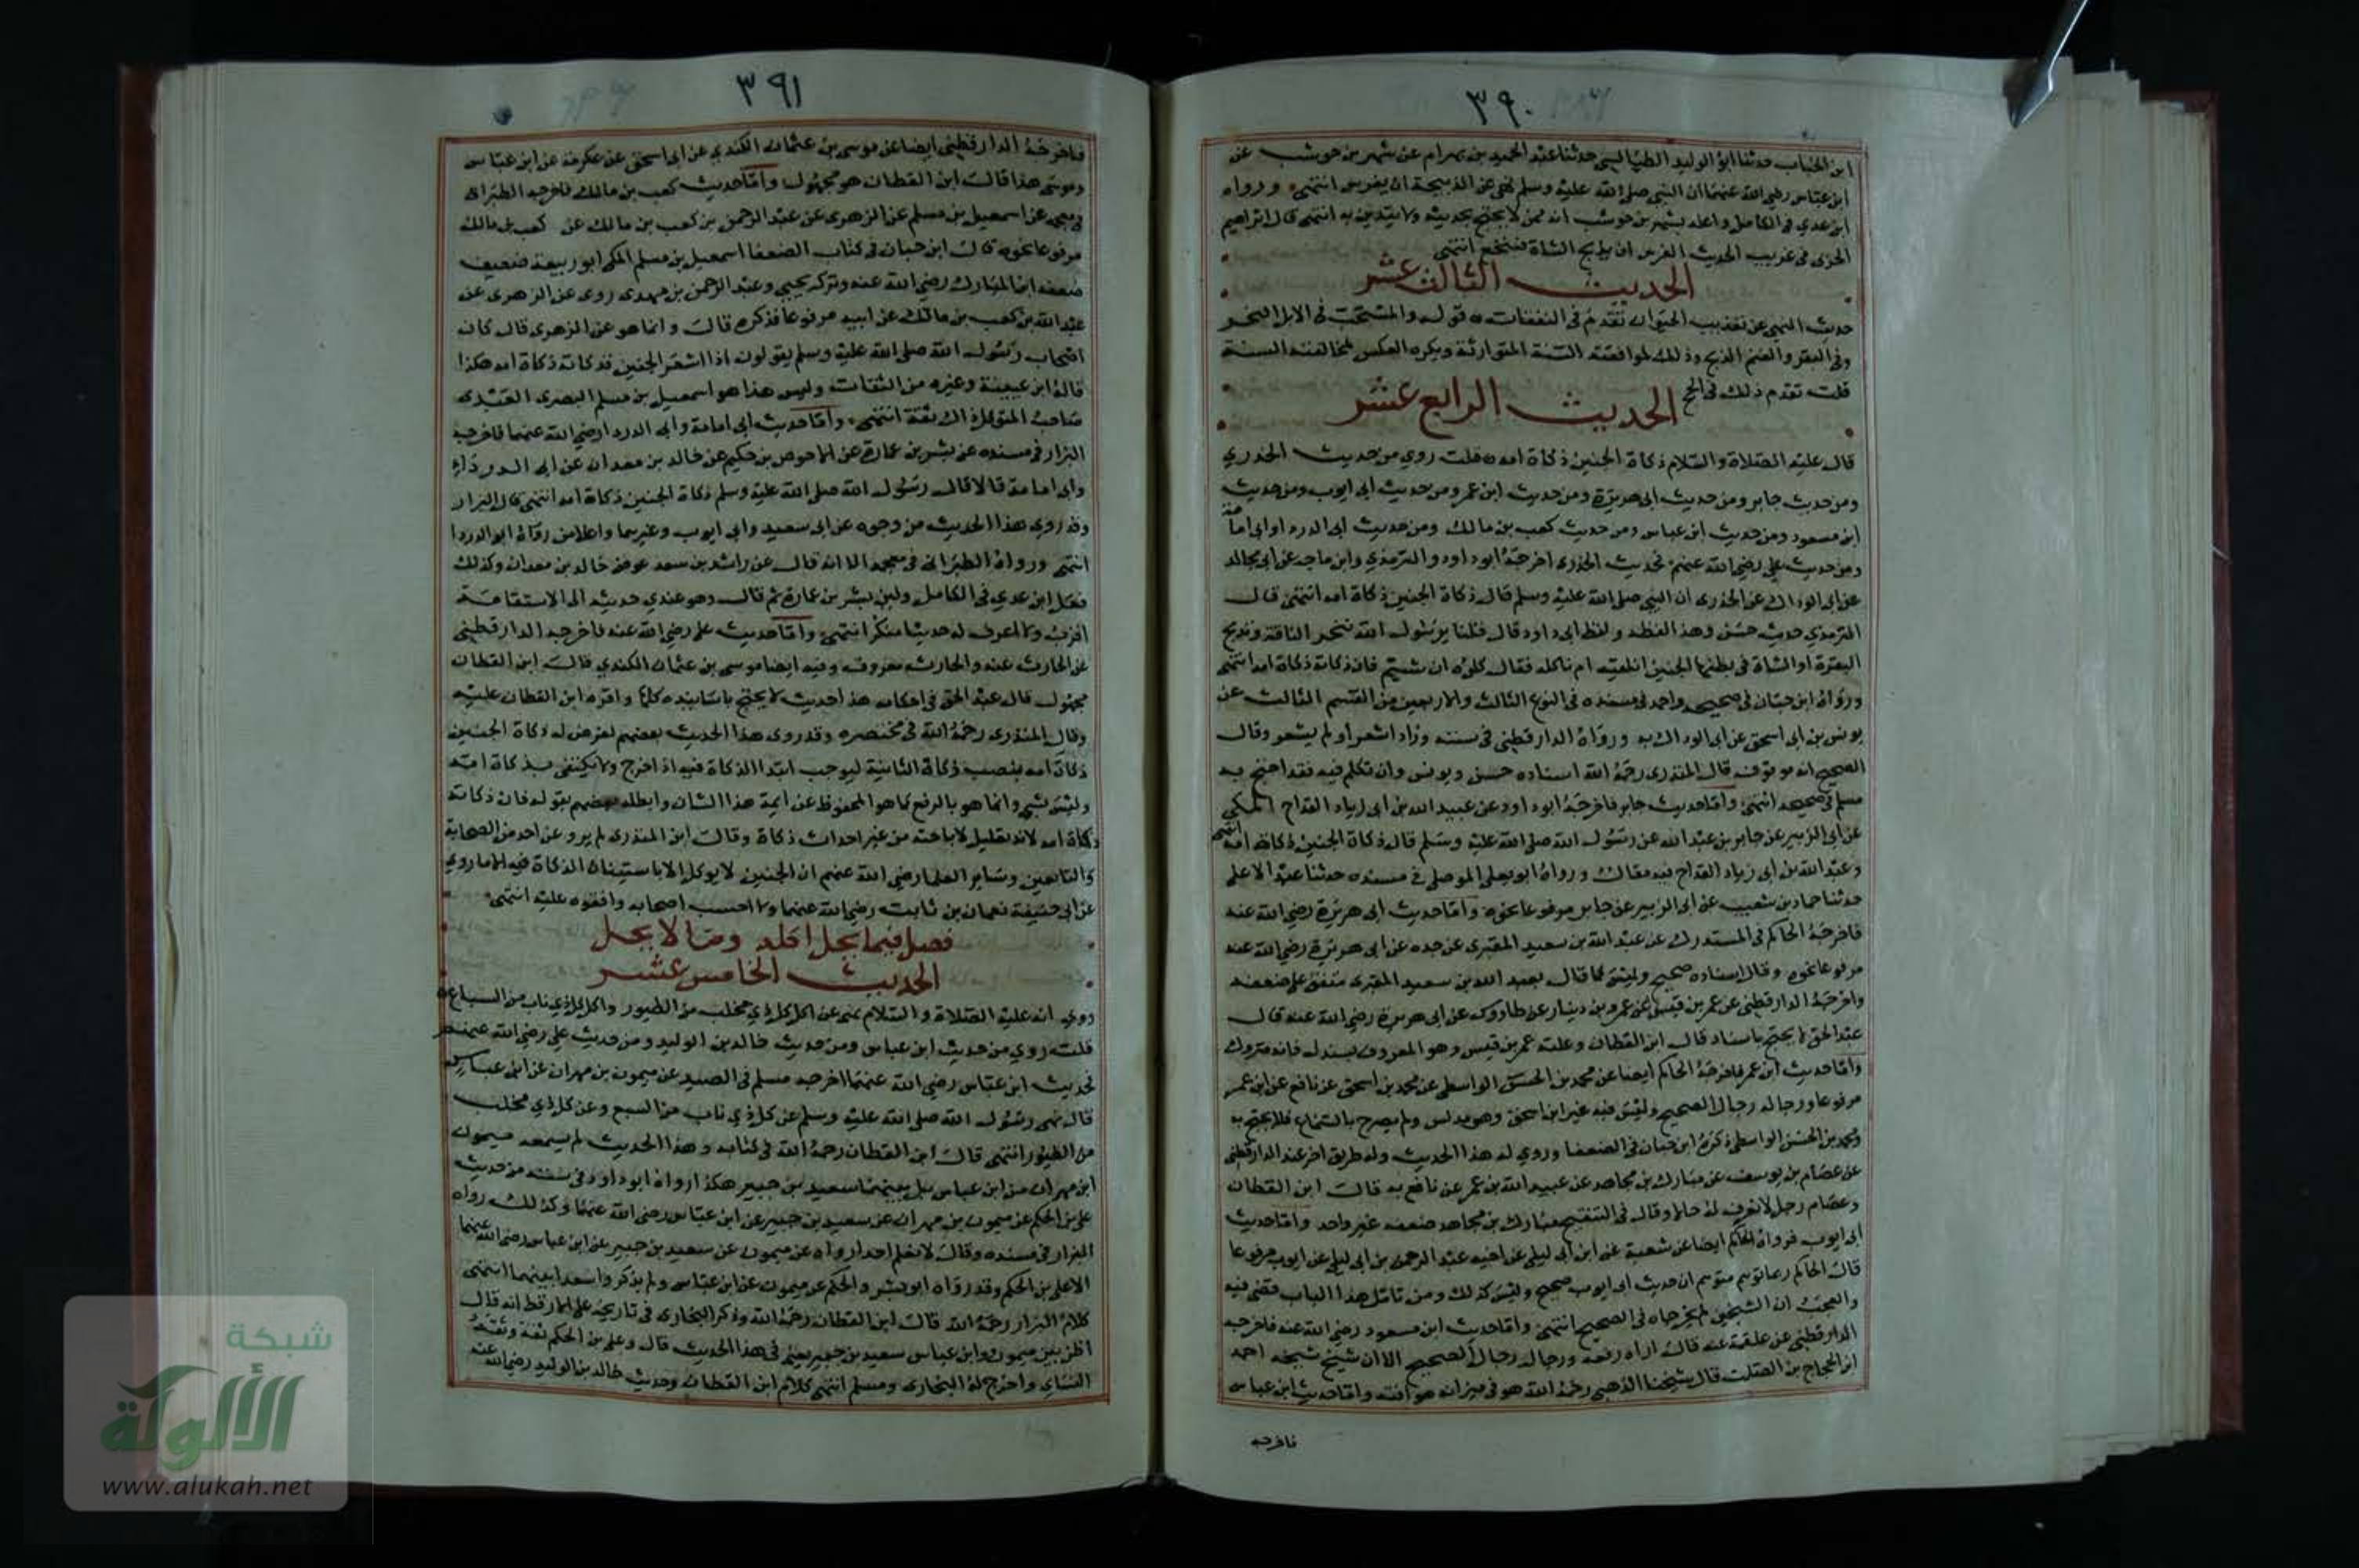 ٣٩٠
ابن الحباب حدثنا ابو الوليد الطيالسي حدثنا عبد الحميد بن بهرام عن شهر بن حوشب عن
ابن عباس رضي الله عنهما ان النبي صلى الله عليه وسلم نهى عن الذبيحة ان يفرس انتهى ورواه
ابن عدي في الكامل واعله بشهر بن حوشب انه ممن لا يحتج بحديثه ولا يتدين به انتهى قال ابراهيم
الحربى فى غريب الحديث الفرس ان يذبح الشاة فتنخع انتهى
الحديث الثالث عشر
حديث النهى عن تعذيب الحيوان تقدم فى النفقات قوله والمستحب فى الابل النحر
وفى البقر والغنم الذبح وذلك لموافقة السنة المتوارثة ويكره العكس لمخالفته السنة
قلت تقدم ذلك فى الحج
الحديث الرابع عشر
قال عليه الصلاة والسلام ذكاة الجنين ذكاة امه قلت روي من حديث الخدري
ومن حديث جابر ومن حديث ابى هريرة ومن حديث ابن عمر ومن حديث ابى ايوب ومن حديث
ابن مسعود ومن حديث ابن عباس ومن حديث كعب بن مالك ومن حديث ابى الدرداء وابى امامة
ومن حديث علي رضي الله عنهم فحديث الخدرى اخرجه ابو داود والترمذي وابن ماجه عن مجالد
عن ابى الوداك عن الخدرى ان النبى صلى الله عليه وسلم قال ذكاة الجنين ذكاة امه انتهى قال
الترمذي حديث حسن وهذا لفظه ولفظ ابى داود قال قلنا يا رسول الله ننحر الناقة ونذبح
البقرة او الشاة فى بطنها الجنين انلقيه ام ناكله فقال كلوه ان شئتم فان ذكاته ذكاة امه انتهى
ورواه ابن حبان فى صحيحه واحمد فى مسنده فى النوع الثالث والاربعين من القسم الثالث عن
يونس بن ابى اسحق عن ابى الوداك به ورواه الدارقطني فى سننه وزاد اشعر او لم يشعر وقال
الصحيح انه موقوف قال المنذرى رحمه الله اسناده حسن ويونس وان تكلم فيه فقد احتج به
مسلم فى صحيحه انتهى واما حديث جابر فاخرجه ابو داود عن عبيد الله بن ابى زياد القداح المكي
عن ابى الزبير عن جابر بن عبد الله عن رسول الله صلى الله عليه وسلم قال ذكاة الجنين ذكاة امه انتهى
وعبد الله بن ابى زياد القداح فيه مقال ورواه ابو يعلى الموصلى فى مسنده حدثنا عبد الاعلى
حدثنا حماد بن شعيب عن ابى الزبير عن جابر مرفوعا نحوه واما حديث ابى هريرة رضي الله عنه
فاخرجه الحاكم فى المستدرك عن عبد الله بن سعيد المقبرى عن جده عن ابى هريرة رضي الله عنه
مرفوعا نحوه وقال اسناده صحيح وليس كما قال بعبد الله بن سعيد المقبرى متفق على ضعفه
واخرجه الدارقطنى عن عمر بن قيس عن عمرو بن دينار عن طاووس عن ابى هريرة رضي الله عنه قال
عبد الحق لا يحتج باسناده قال ابن القطان وعلته عمر بن قيس وهو المعروف بسندل فانه متروك
واما حديث ابن عمر فاخرجه الحاكم ايضا عن محمد بن الحسن الواسطى عن محمد بن اسحق عن نافع عن ابن عمر
مرفوعا ورجاله رجال الصحيح وليس فيه غير ابن اسحق وهو مدلس ولم يصرح بالسماع فلا يحتج به
ومحمد بن الحسن الواسطى ذكره ابن حبان فى الضعفا وروي له هذا الحديث وله طريق اخر عند الدارقطنى
عن عصام بن يوسف عن مبارك بن مجاهد عن عبيد الله بن عمر عن نافع به قال ابن القطان
وعصام رجل لا نعرف له حالا وقال فى التنقيح مبارك بن مجاهد ضعفه غير واحد واما حديث
ابى ايوب فرواه الحاكم ايضا عن شعبة عن ابن ابى ليلى عن اخيه عبد الرحمن بن ابى ليلى عن ابى ايوب مرفوعا
قال الحاكم ربما توهم متوهم ان حديث ابى ايوب صحيح وليس كذلك ومن تامل هذا الباب قضى فيه
والعجب ان الشيخين لم يخرجاه فى الصحيح انتهى واما حديث ابن مسعود رضي الله عنه فاخرجه
الدارقطنى عن علقمة عنه قال اراه رفعه ورجاله رجال الصحيح الا ان شيخ شيخه احمد
ابن الحجاج بن الصلت قال شيخنا الذهبى رحمه الله هو فى ميزانه هو آفته واما حديث ابن عباس
فاخرجه
٣٩١
فاخرجه الدارقطنى ايضا عن موسى بن عثمان الكندي عن ابى اسحق عن عكرمة عن ابن عباس
وموسى هذا قال ابن القطان هو مجهول واما حديث كعب بن مالك فاخرجه الطبرانى
فى معجمه عن اسمعيل بن مسلم عن الزهرى عن عبد الرحمن بن كعب بن مالك عن كعب بن مالك
مرفوعا نحوه قال ابن حبان فى كتاب الضعفا اسمعيل بن مسلم المكى ابو ربيعة ضعيف
ضعفه ابن المبارك رضي الله عنه وتركه يحيى وعبد الرحمن بن مهدى روى عن الزهرى عن
عبد الله بن كعب بن مالك عن ابيه مرفوعا فذكره قال وانما هو عن الزهرى قال كان
اصحاب رسول الله صلى الله عليه وسلم يقولون اذا اشعر الجنين فذكاته ذكاة امه هكذا
قاله ابن عيينة وغيره من الثقات وليس هذا هو اسمعيل بن مسلم البصرى العبدى
صاحب المتوكل ذاك ثقة انتهى واما حديث ابى امامة وابى الدرداء رضي الله عنهما فاخرجه
البزار فى مسنده عن بشر بن عمارة عن الاحوص بن حكيم عن خالد بن معدان عن ابى الدرداء
وابى امامة قالا قال رسول الله صلى الله عليه وسلم ذكاة الجنين ذكاة امه انتهى قال البزار
وقد روى هذا الحديث من وجوه عن ابى سعيد وابى ايوب وغيرهما واعلا من رواه ابو الدردا
انتهى ورواه الطبرانى فى معجمه الا انه قال عن راشد بن سعد عوض خالد بن معدان وكذلك
فعل ابن عدي فى الكامل ولين بشر بن عمارة ثم قال وهو عندي حديثه الى الاستقامة
اقرب ولا اعرف له حديثا منكرا انتهى واما حديث على رضي الله عنه فاخرجه الدارقطنى
عن الحارث عنه والحارث معروف وفيه ايضا موسى بن عثمان الكندي قال ابن القطان
مجهول قال عبد الحق فى احكامه هذا حديث لا يحتج باسانيده كلها واقره ابن القطان عليه
وقال المنذرى رحمه الله فى مختصره وقد روى هذا الحديث بعضهم لغرض له ذكاة الجنين
ذكاة امه بنصب ذكاة الثانية ليوجب ابتدا الذكاة فيه اذا خرج ولا يكتفى بذكاة امه
وليس بشى وانما هو بالرفع كما هو المحفوظ عن ايمة هذا الشان وابطله بعضهم بقوله فان ذكاته
ذكاة امه لانه تعليل لاباحته من غير احداث ذكاة وقال ابن المنذرى لم يرو عن احد من الصحابة
والتابعين وساير العلما رضي الله عنهم ان الجنين لا يوكل الا باستيناف الذكاة فيه الا ما روي
عن ابى حنيفة نعمان بن ثابت رضي الله عنهما ولا احسب اصحابه وافقوه عليه انتهى
فصل فيما يحل اكله وما لا يحل
الحديث الخامس عشر
روي انه عليه الصلاة والسلام نهى عن اكل كل ذي مخلب من الطيور واكل كل ذي ناب من السباع
قلت روي من حديث ابن عباس ومن حديث خالد بن الوليد ومن حديث علي رضي الله عنهم
فحديث ابن عباس رضي الله عنهما اخرجه مسلم فى الصيد عن ميمون بن مهران عن ابن عباس
قال نهى رسول الله صلى الله عليه وسلم عن كل ذي ناب من السبع وعن كل ذي مخلب
من الطيور انتهى قال ابن القطان رحمه الله فى كتابه وهذا الحديث لم يسمعه ميمون
ابن مهران من ابن عباس بل بينهما سعيد بن جبير هكذا رواه ابو داود فى سننه من حديث
على بن الحكم عن ميمون بن مهران عن سعيد بن جبير عن ابن عباس رضي الله عنهما وكذلك رواه
البزار فى مسنده وقال لا نعلم احدا رواه عن ميمون عن سعيد بن جبير عن ابن عباس رضي الله عنهما
الا على بن الحكم وقد رواه ابو بشر والحكم عن ميمون عن ابن عباس ولم يذكروا سعيدا بينهما انتهى
كلام البزار رحمه الله قال ابن القطان رحمه الله وذكر البخارى فى تاريخه على الارقط انه قال
اظن بين ميمون وابن عباس سعيد بن جبير يعنى فى هذا الحديث قال وعلى بن الحكم ثقة وثقه
النساي واخرج له البخارى ومسلم انتهى كلام ابن القطان وحديث خالد بن الوليد رضي الله عنه
شبكة
الألوكة
www.alukah.net